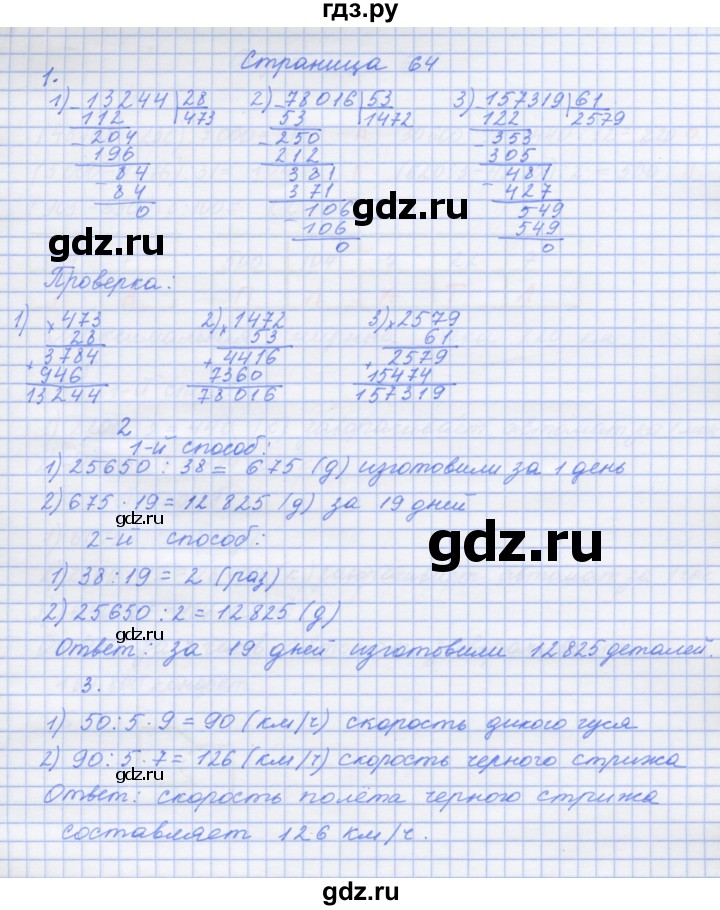 гдз.ру
Страница 64
1.
1) 13244 | 28 2) 78016 | 53 3) 157319 | 61
112 473 53 1472 122 2579
204 250 353
196 212 305
84 381 481
84 371 427
0 106 549
106 549
0 0
gdz.ru
gdz.ru
Проверка:
1) × 473 2) × 1472 3) × 2579
28 53 61
+ 3784 + 4416 + 2579
946 7360 15474
13244 78016 157319
2
1-й способ:
1) 25650 : 38 = 675 (д) изготовили за 1 день
2) 675 · 19 = 12825 (д) за 19 дней
gdz.ru
gdz.ru
2-й способ:
1) 38 : 19 = 2 (раз)
2) 25650 : 2 = 12825 (д)
gdz.ru
Ответ: за 19 дней изготовили 12825 деталей.
3.
1) 50 : 5 · 9 = 90 (км/ч) скорость дикого гуся
2) 90 : 5 · 7 = 126 (км/ч) скорость черного стрижа
gdz.ru
Ответ: скорость полёта черного стрижа
составляет 126 км/ч.
gdz.ru
gdz.ru